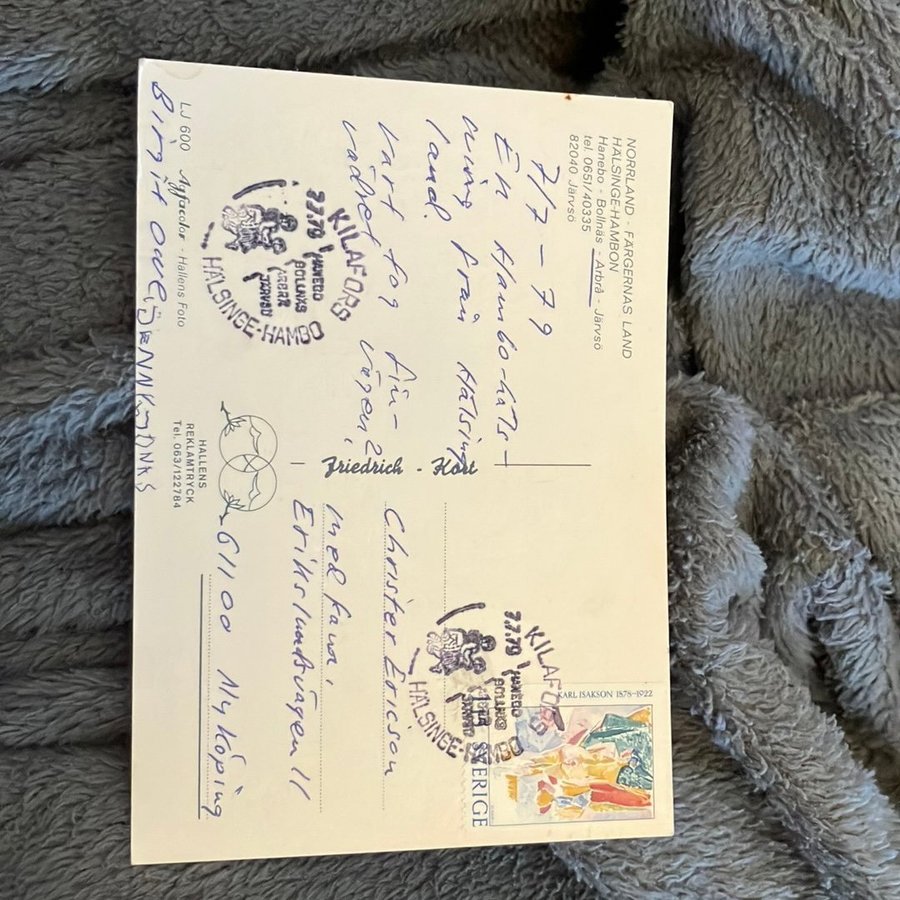 NORRLAND - FÄRGERNAS LAND
HÄLSINGE-HAMBON
Hanebo - Bollnäs - Arbrå - Järvsö
tel. 0651/40335
82040 Järvsö
7/7 - 79
En Hambo-häls-
ning från Hälsinge
land.
Vart tog fin-
vädret vägen?
KILAFORS
7.7.79
HANEBO
BOLLNÄS
ARBRÅ
JÄRVSÖ
HÄLSINGE-HAMBO
LJ 600 Agfacolor - Hallens Foto
Birgit Ove,
Friedrich - Kort
HALLENS
REKLAMTRYCK
Tel. 063/122784
KARL ISAKSON 1878-1922
SVERIGE
KILAFORS
7.7.79
HANEBO
BOLLNÄS
ARBRÅ
JÄRVSÖ
HÄLSINGE-HAMBO
Christer Ericson
med fam.
Erikslundsvägen 11
611 00 Nyköping